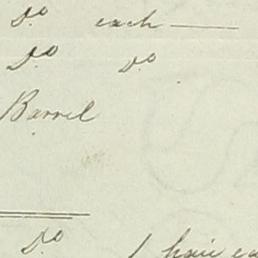 Do each
Do Do
Barrel
Do 1 hair